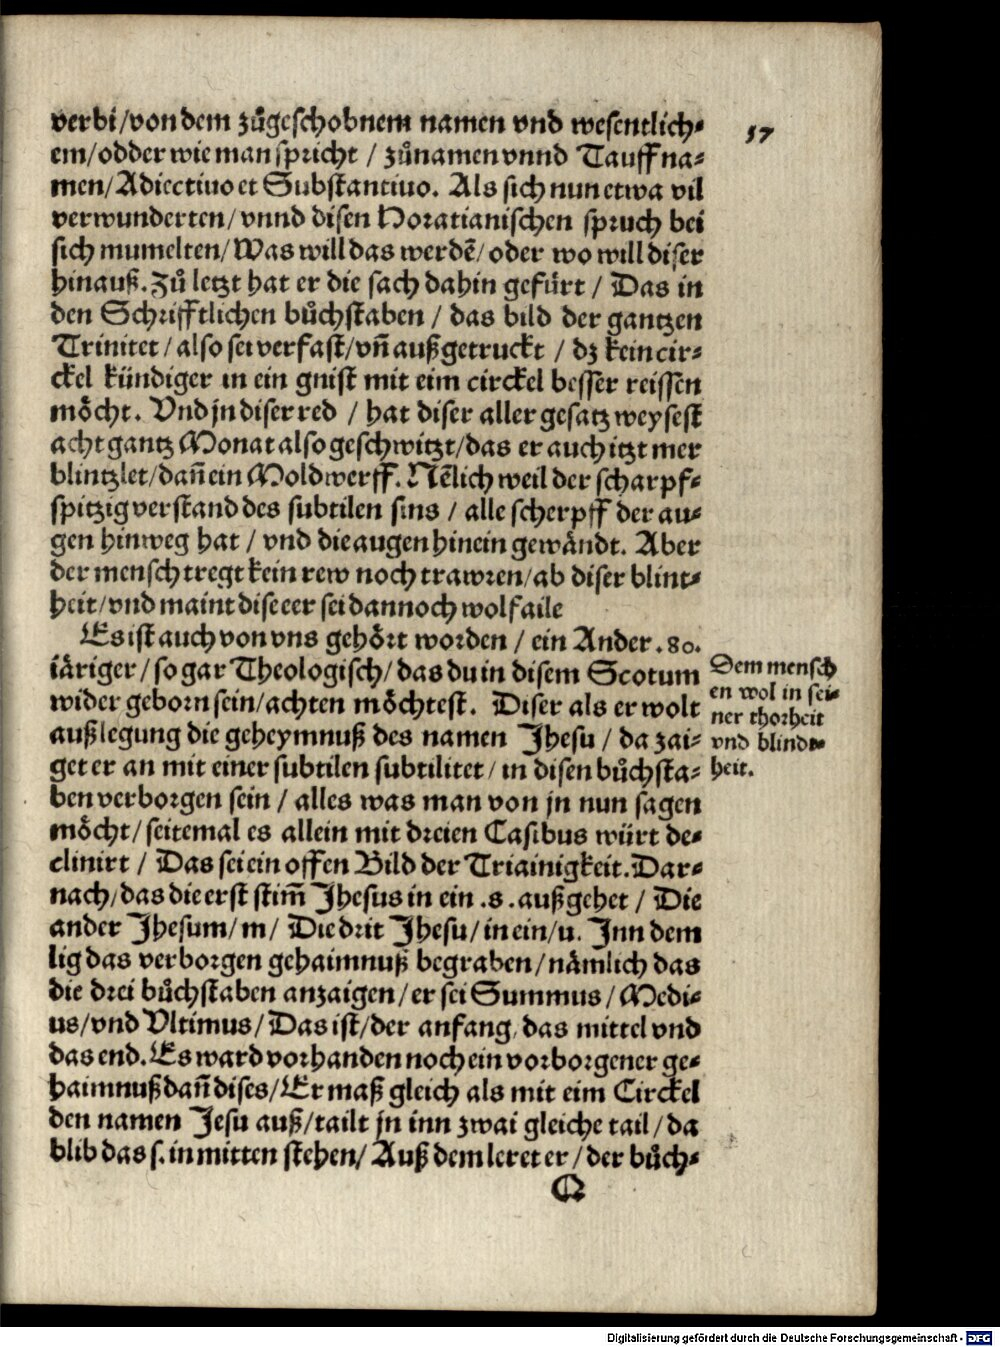 57
verbi/von dem zůgeschobnem namen vnd wesentlich⸗
em/odder wie man spricht / zůnamen vnnd Tauff na⸗
men/Adiectiuo et Substantiuo. Als sich nun etwa vil
verwunderten/vnnd disen Horatianischen spruch bei
sich mumelten/Was will das werdẽ/oder wo will diser
hinauß. Zů letzt hat er die sach dahin gefürt / Das in
den Schrifftlichen bůchstaben / das bild der gantzen
Trinitet/also sei verfast/vñ außgetruckt / dz kein cir⸗
ckel kündiger in ein gnist mit eim circkel besser reissen
möcht. Vnd jn diser red / hat diser aller gesatz weysest
acht gantz Monat also geschwitzt/das er auch itzt mer
blintzlet/dañ ein Moldwerff. Nẽlich weil der scharpf⸗
spitzig verstand des subtilen sins / alle scherpff der au⸗
gen hinweg hat / vnd die augen hinein gewändt. Aber
der mensch tregt kein rew noch trawren/ab diser blint⸗
heit/vnd maint dise eer sei dannoch wolfaile
Es ist auch von vns gehört worden / ein Ander .80.
iäriger/so gar Theologisch/das du in disem Scotum
wider geborn sein/achten möchtest. Diser als er wolt
außlegung die geheymnuß des namen Jhesu / da zai⸗
get er an mit einer subtilen subtilitet/in disen bůchsta⸗
ben verborgen sein / alles was man von jn nun sagen
möcht/seitemal es allein mit dreien Casibus würt de⸗
clinirt / Das sei ein offen Bild der Triainigkeit. Dar⸗
nach/das die erst stim̃ Jhesus in ein .s. außgehet / Die
ander Jhesum/m/ Die drit Jhesu/in ein/u. Inn dem
lig das verborgen gehaimnuß begraben/nämlich das
die drei bůchstaben anzaigen/er sei Summus/Medi⸗
us/vnd Vltimus/Das ist/der anfang, das mittel vnd
das end. Es ward vorhanden noch ein vorborgener ge⸗
haimnuß dañ dises/Er maß gleich als mit eim Circkel
den namen Jesu auß/tailt jn inn zwai gleiche tail/da
blib das s. in mitten stehen/ Auß dem leret er/der bůch⸗
Q
Dem mensch
en wol in sei⸗
ner thorheit
vnd blind⸗
heit.
Digitalisierung gefördert durch die Deutsche Forschungsgemeinschaft - DFG